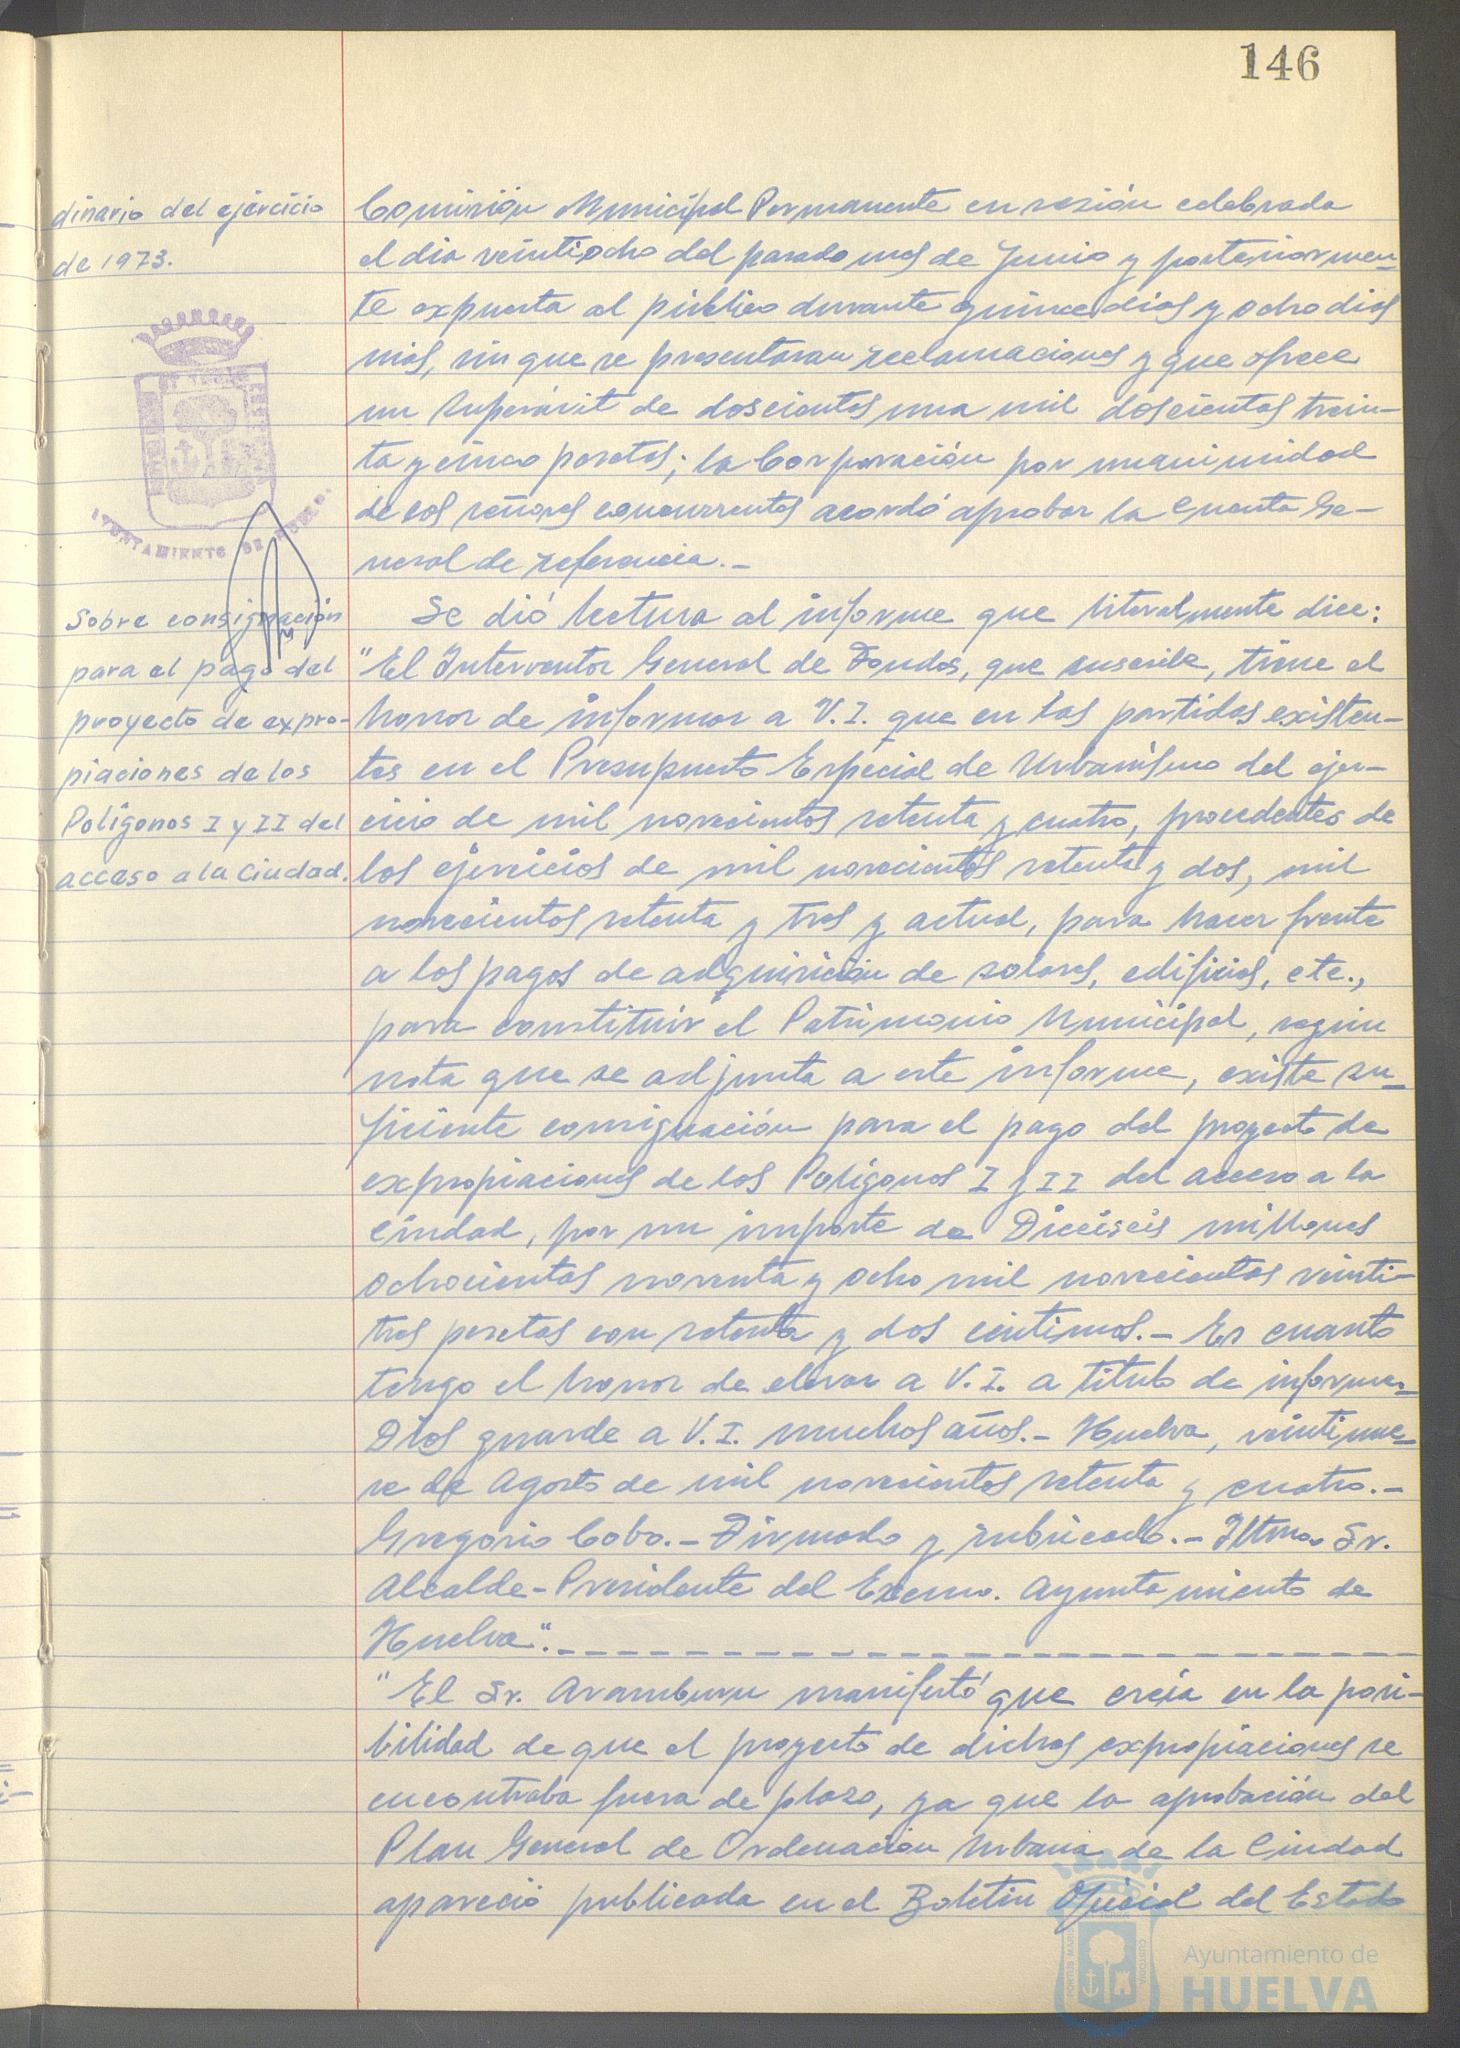 146
dinario del ejercicio
de 1973.
AYUNTAMIENTO DE HUELVA.
Sobre consignación
para el pago del
proyecto de expro-
piaciones de los
Polígonos I y II del
acceso a la Ciudad.
Comisión Municipal Permanente en sesión celebrada
el dia veintiocho del pasado mes de Junio y posteriormen-
te expuesta al público durante quince dias y ocho dias
más, sin que se presentaran reclamaciones y que ofrece
un Superávit de doscientas una mil doscientas trein-
ta y cinco pesetas; la Corporación por unanimidad
de los señores concurrentes acordó aprobar la Cuenta Ge-
neral de referencia.-
Se dió lectura al informe que literalmente dice:
"El Interventor General de Fondos, que suscribe, tiene el
honor de informar a V.I. que en las partidas existen-
tes en el Presupuesto Especial de Urbanismo del ejer-
cicio de mil novecientos setenta y cuatro, procedentes de
los ejercicios de mil novecientos setenta y dos, mil
novecientos setenta y tres y actual, para hacer frente
a los pagos de adquisición de solares, edificios, etc.,
para constituir el Patrimonio Municipal, según
nota que se adjunta a este informe, existe su-
ficiente consignación para el pago del proyecto de
expropiaciones de los Polígonos I y II del acceso a la
Ciudad, por un importe de Dieciseis millones
ochocientas noventa y ocho mil novecientas veinti-
tres pesetas con setenta y dos céntimos.- Es cuanto
tengo el honor de elevar a V.I. a título de informe.-
Dios guarde a V.I. muchos años.- Huelva, veintinue-
ve de Agosto de mil novecientos setenta y cuatro.-
Gregorio Cobo.- Firmado y rubricado.- Iltmo. Sr.
Alcalde-Presidente del Excmo. Ayuntamiento de
Huelva".
"El Sr. Aramburu manifestó que creía en la posi-
bilidad de que el proyecto de dichas expropiaciones se
encontraba fuera de plazo, ya que la aprobación del
Plan General de Ordenación Urbana de la Ciudad
apareció publicada en el Boletin Oficial del Estado
Ayuntamiento de
HUELVA